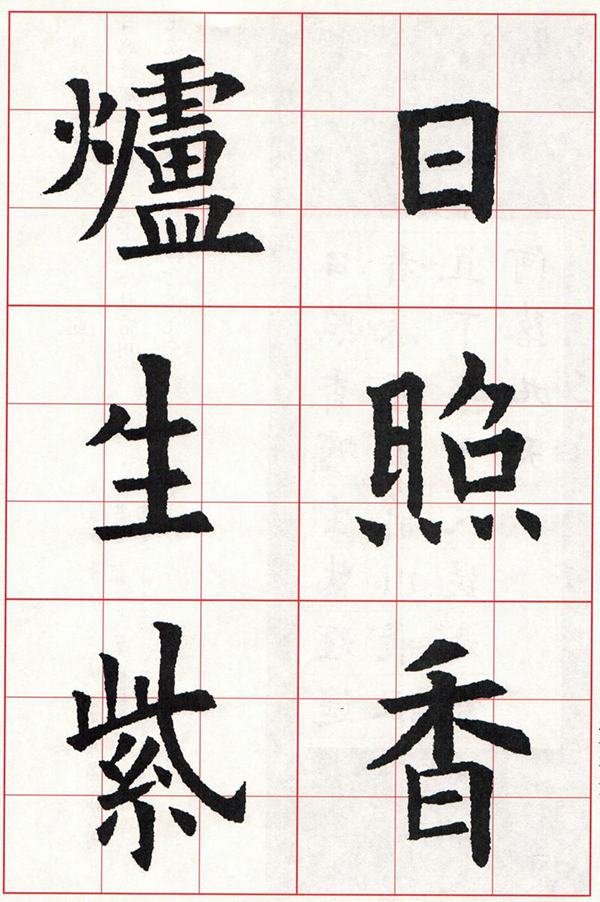 日照香
爐生紫